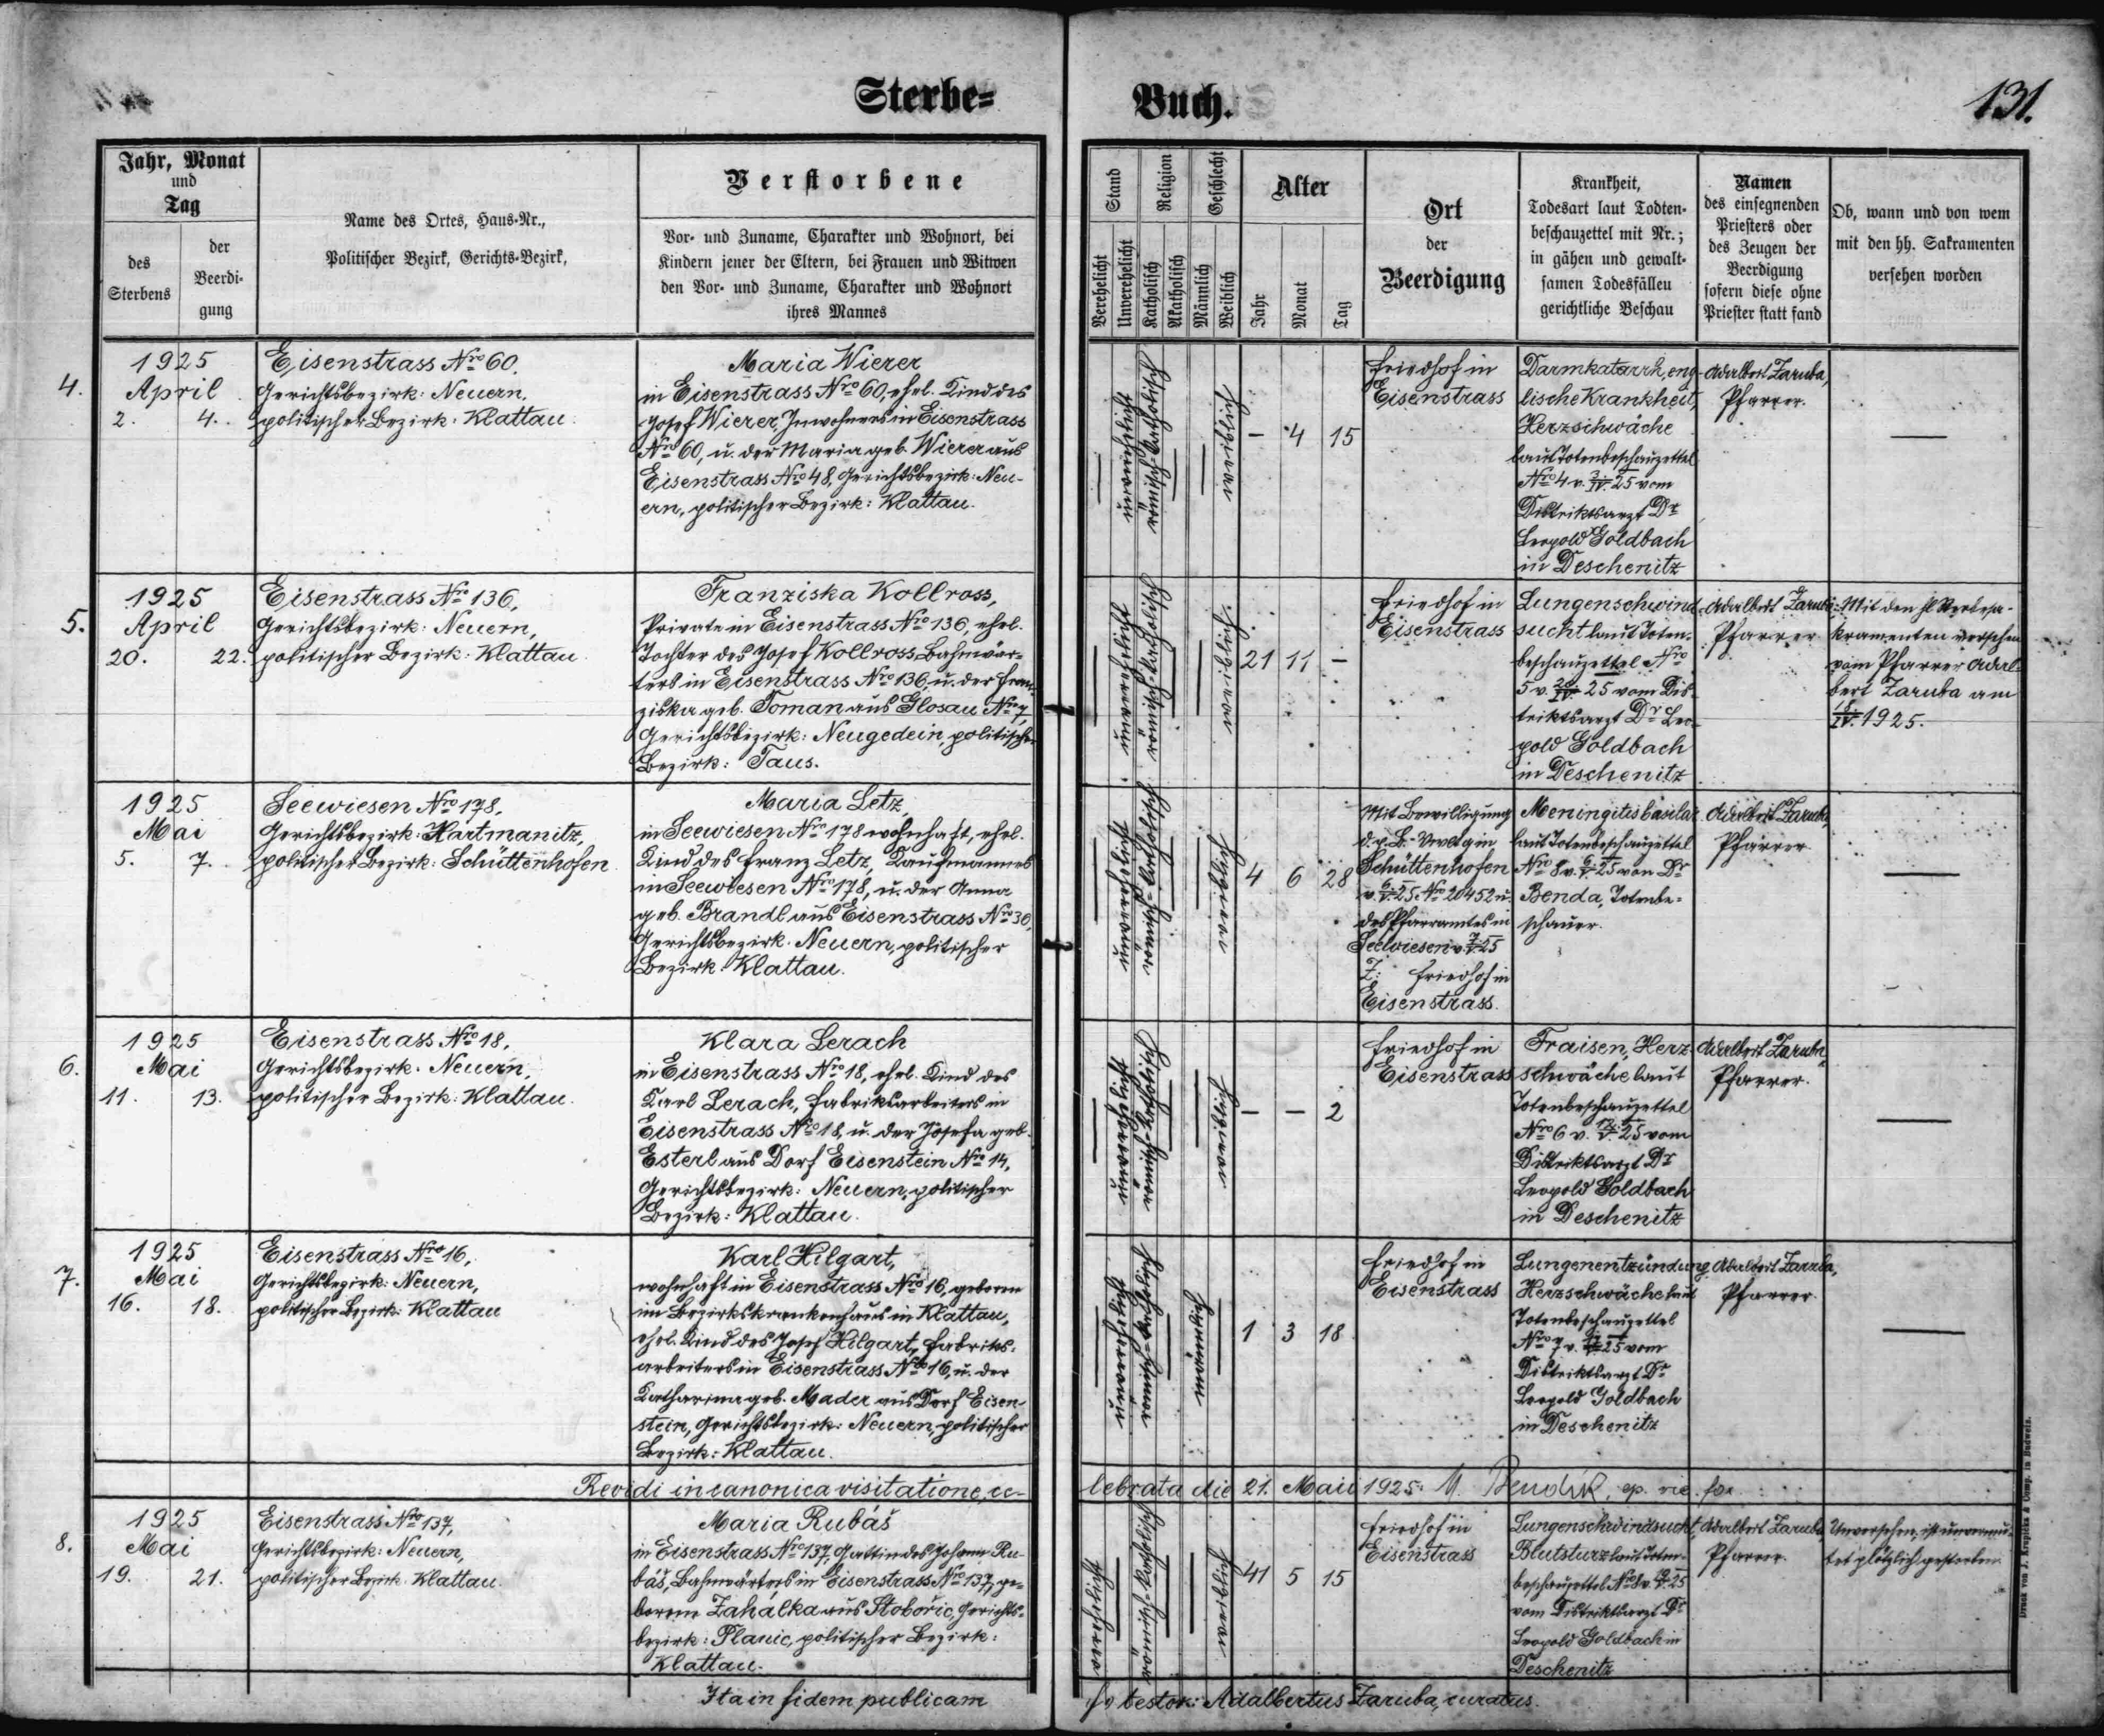 Sterbe-
Buch.
131.
Jahr, Monat
und
Tag
des
Sterbens
der
Beerdi-
gung
Name des Ortes, Haus-Nr.,
Politischer Bezirk, Gerichts-Bezirk,
Verstorbene
Vor- und Zuname, Charakter und Wohnort, bei
Kindern jener der Eltern, bei Frauen und Witwen
den Vor- und Zuname, Charakter und Wohnort
ihres Mannes
Stand
Verehelicht
Unverehelicht
Religion
Katholisch
Akatholisch
Geschlecht
Männlich
Weiblich
Alter
Jahr
Monat
Tag
Ort
der
Beerdigung
Krankheit,
Todesart laut Todten-
beschauzettel mit Nr.;
in gähen und gewalt-
samen Todesfällen
gerichtliche Beschau
Namen
des einsegnenden
Priesters oder
des Zeugen der
Beerdigung
sofern diese ohne
Priester statt fand
Ob, wann und von wem
mit den hh. Sakramenten
versehen worden
4.
1925
April
2. 4.
Eisenstrass Nro 60.
Gerichtsbezirk: Neuern,
politischer Bezirk: Klattau.
Maria Wierer
in Eisenstrass Nro 60, ehel. Kind des
Josef Wierer, Inwohners in Eisenstrass
Nro 60, u. der Maria geb. Wierer aus
Eisenstrass Nro 48, Gerichtsbezirk: Neu-
ern, politischer Bezirk: Klattau.
unverehelicht
römisch-katholisch
weiblich
— 4 15
Friedhof in
Eisenstrass
Darmkatarrh, eng-
lische Krankheit,
Herzschwäche
laut Totenbeschauzettel
Nro 4 v. 3/IV. 25 vom
Distriktsarzt Dr
Leopold Goldbach
in Deschenitz
Adalbert Zaruba,
Pfarrer.
—
5.
1925
April
20. 22.
Eisenstrass Nro 136,
Gerichtsbezirk: Neuern,
politischer Bezirk: Klattau.
Franziska Kollross,
Private in Eisenstrass Nro 136, ehel.
Tochter des Josef Kollross, Bahnwär-
ters in Eisenstrass Nro 136, u. der Fran-
ziska geb. Toman aus Glosau Nro 7,
Gerichtsbezirk: Neugedein, politischer
Bezirk: Taus.
unverehelicht
römisch-katholisch
weiblich
21 11 —
Friedhof in
Eisenstrass
Lungenschwind-
sucht laut Toten-
beschauzettel Nro
5 v. 20/IV. 25 vom Dis-
triktsarzt Dr Leo-
pold Goldbach
in Deschenitz
Adalbert Zaruba,
Pfarrer
Mit den hl. Sterbesa-
kramenten versehen
vom Pfarrer Adal-
bert Zaruba am
18./IV. 1925.
1925
Mai
5. 7.
Seewiesen Nro 178,
Gerichtsbezirk: Hartmanitz,
politischer Bezirk: Schüttenhofen
Maria Letz,
in Seewiesen Nro 178 wohnhaft, ehel.
Kind des Franz Letz, Kaufmannes
in Seewiesen Nro 178, u. der Anna
geb. Brandl aus Eisenstrass Nro 30,
Gerichtsbezirk: Neuern, politischer
Bezirk: Klattau.
unverehelicht
römisch-katholisch
weiblich
4 6 28
Mit Bewilligung
Schüttenhofen
v. 6/V. 25. Nro 20452 u.
des Pfarramtes in
Seewiesen v. 7/V. 25
Z: Friedhof in
Eisenstrass.
Meningitis basilar.
laut Totenbeschauzettel
Nro 8 v. 6/V. 25 von Dr
Benda, Totenbe-
schauer.
Adalbert Zaruba,
Pfarrer
—
6.
1925
Mai
11. 13.
Eisenstrass Nro 18,
Gerichtsbezirk: Neuern,
politischer Bezirk: Klattau.
Klara Lerach
in Eisenstrass Nro 18, ehel. Kind des
Karl Lerach, Fabriksarbeiters in
Eisenstrass Nro 18, u. der Josefa geb.
Esterl aus Dorf Eisenstein Nro 14,
Gerichtsbezirk: Neuern, politischer
Bezirk: Klattau.
unverehelicht
römisch-katholisch
weiblich
— — 2
Friedhof in
Eisenstrass
Fraisen, Herz-
schwäche laut
Totenbeschauzettel
Nro 6 v. 12/V. 25 vom
Distriktsarzt Dr
Leopold Goldbach
in Deschenitz
Adalbert Zaruba,
Pfarrer.
—
7.
1925
Mai
16. 18.
Eisenstrass Nro 16,
Gerichtsbezirk: Neuern,
politischer Bezirk: Klattau
Karl Hilgart,
wohnhaft in Eisenstrass Nro 16, geboren
im Bezirkskrankenhaus in Klattau,
ehel. Kind des Josef Hilgart, Fabriks-
arbeiters in Eisenstrass Nro 16, u. der
Katharina geb. Mader aus Dorf Eisen-
stein, Gerichtsbezirk: Neuern, politischer
Bezirk: Klattau.
unverehelicht
römisch-katholisch
männlich
1 3 18
Friedhof in
Eisenstrass
Lungenentzündung,
Herzschwäche laut
Totenbeschauzettel
Nro 7 v. 25 vom
Distriktsarzt Dr
Leopold Goldbach
in Deschenitz
Adalbert Zaruba,
Pfarrer.
—
Revidi in canonica visitatione, ce-
lebrata die 21. Maii 1925.
8.
1925
Mai
19. 21.
Eisenstrass Nro 137,
Gerichtsbezirk: Neuern,
politischer Bezirk: Klattau.
Maria Rubáš
in Eisenstrass Nro 137, Gattin des Johann Ru-
báš, Bahnwärters in Eisenstrass Nro 137, ge-
borene Zahálka aus Stobořic, Gerichts-
bezirk: Planic, politischer Bezirk:
Klattau.
verehelicht
römisch-katholisch
weiblich
41 5 15
Friedhof in
Eisenstrass
Lungenschwindsucht,
Blutsturz laut Toten-
beschauzettel Nro 8 v. 19/V. 25
vom Distriktsarzt Dr
Leopold Goldbach in
Deschenitz
Adalbert Zaruba,
Pfarrer.
Unversehen, ist unvermu-
tet plötzlich gestorben.
Ita in fidem publicam
testor: Adalbertus Zaruba, curatus.
Druck von J. Krupička & Comp. in Budweis.